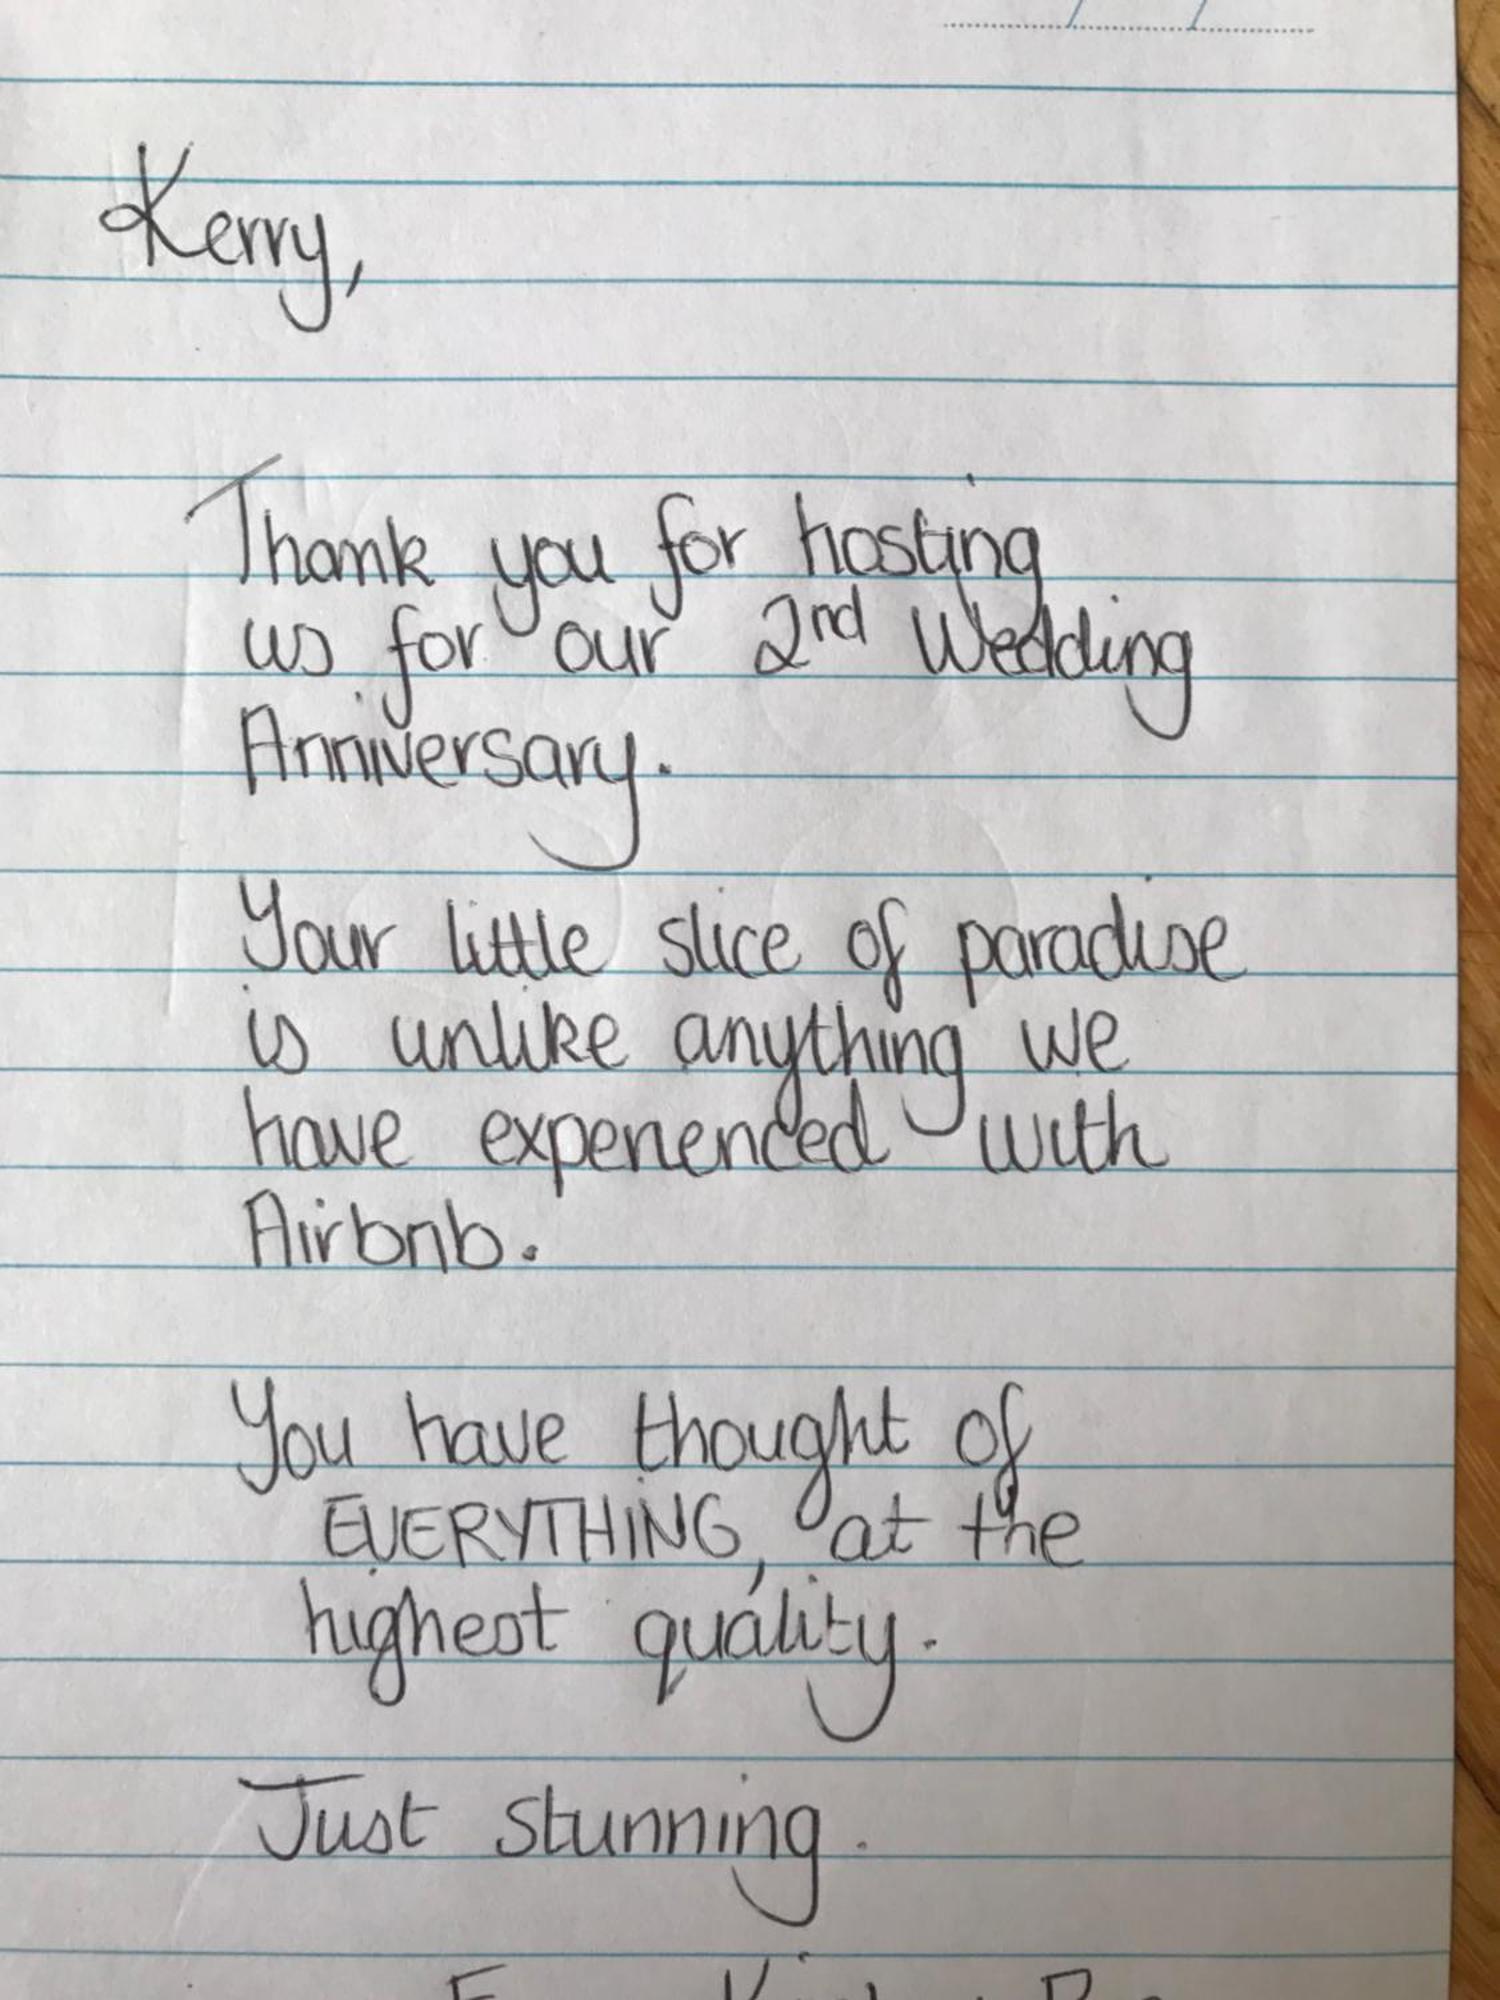 Kerry,
Thank you for hosting
us for our 2nd Wedding
Anniversary.
Your little slice of paradise
is unlike anything we
have experienced with
Airbnb.
You have thought of
EVERYTHING, at the
highest quality.
Just stunning.